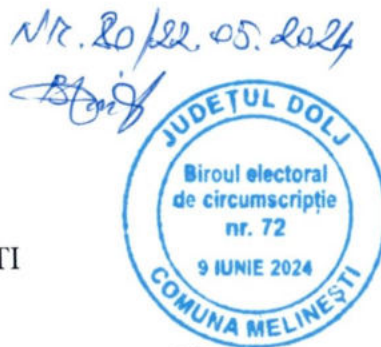 Nr. 80/22.05.2024
JUDEȚUL DOLJ
Biroul electoral
de circumscripție
nr. 72
9 IUNIE 2024
COMUNA MELINEȘTI
TI